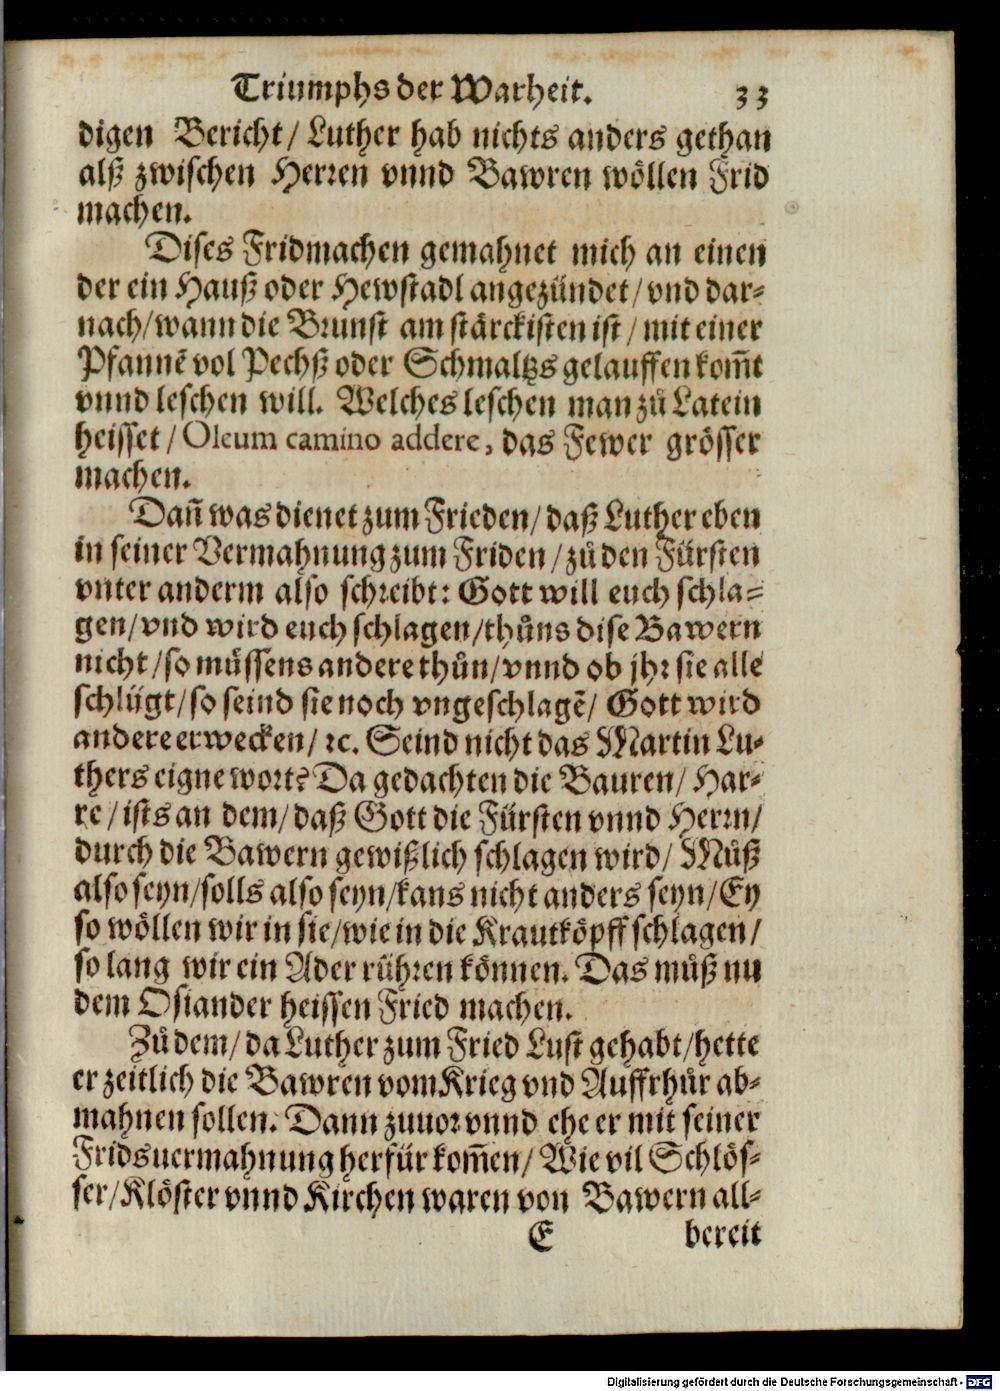 Triumphs der Warheit. 33
digen Bericht/ Luther hab nichts anders gethan
alß zwischen Herren vnnd Bawren wöllen Frid
machen.
Dises Fridmachen gemahnet mich an einen
der ein Hauß oder Hewstadl angezündet/ vnd dar-
nach/ wann die Brunst am stärckisten ist/ mit einer
Pfannē vol Pechß oder Schmaltzs gelauffen kom̄t
vnnd leschen will. Welches leschen man zů Latein
heisset/ Oleum camino addere, das Fewer grösser
machen.
Dañ was dienet zum Frieden/ daß Luther eben
in seiner Vermahnung zum Friden/ zů den Fürsten
vnter anderm also schreibt: Gott will euch schla-
gen/ vnd wird euch schlagen/ thůns dise Bawern
nicht/ so müssens andere thůn/ vnnd ob jhr sie alle
schlügt/ so seind sie noch vngeschlagē/ Gott wird
andere erwecken/ ꝛc. Seind nicht das Martin Lu-
thers eigne wort? Da gedachten die Bauren/ Har-
re/ ists an dem/ daß Gott die Fürsten vnnd Herrn/
durch die Bawern gewißlich schlagen wird/ Můß
also seyn/ solls also seyn/ kans nicht anders seyn/ Ey
so wöllen wir in sie/ wie in die Krautköpff schlagen/
so lang wir ein Ader rühren können. Das můß nu
dem Osiander heissen Fried machen.
Zů dem/ da Luther zum Fried Lust gehabt/ hette
er zeitlich die Bawren vom Krieg vnd Auffrhůr ab-
mahnen sollen. Dann zuuor vnnd ehe er mit seiner
Fridsuermahnung herfür kom̄en/ Wie vil Schlös-
ser/ Klöster vnnd Kirchen waren von Bawern all-
E bereit
Digitalisierung gefördert durch die Deutsche Forschungsgemeinschaft - DFG